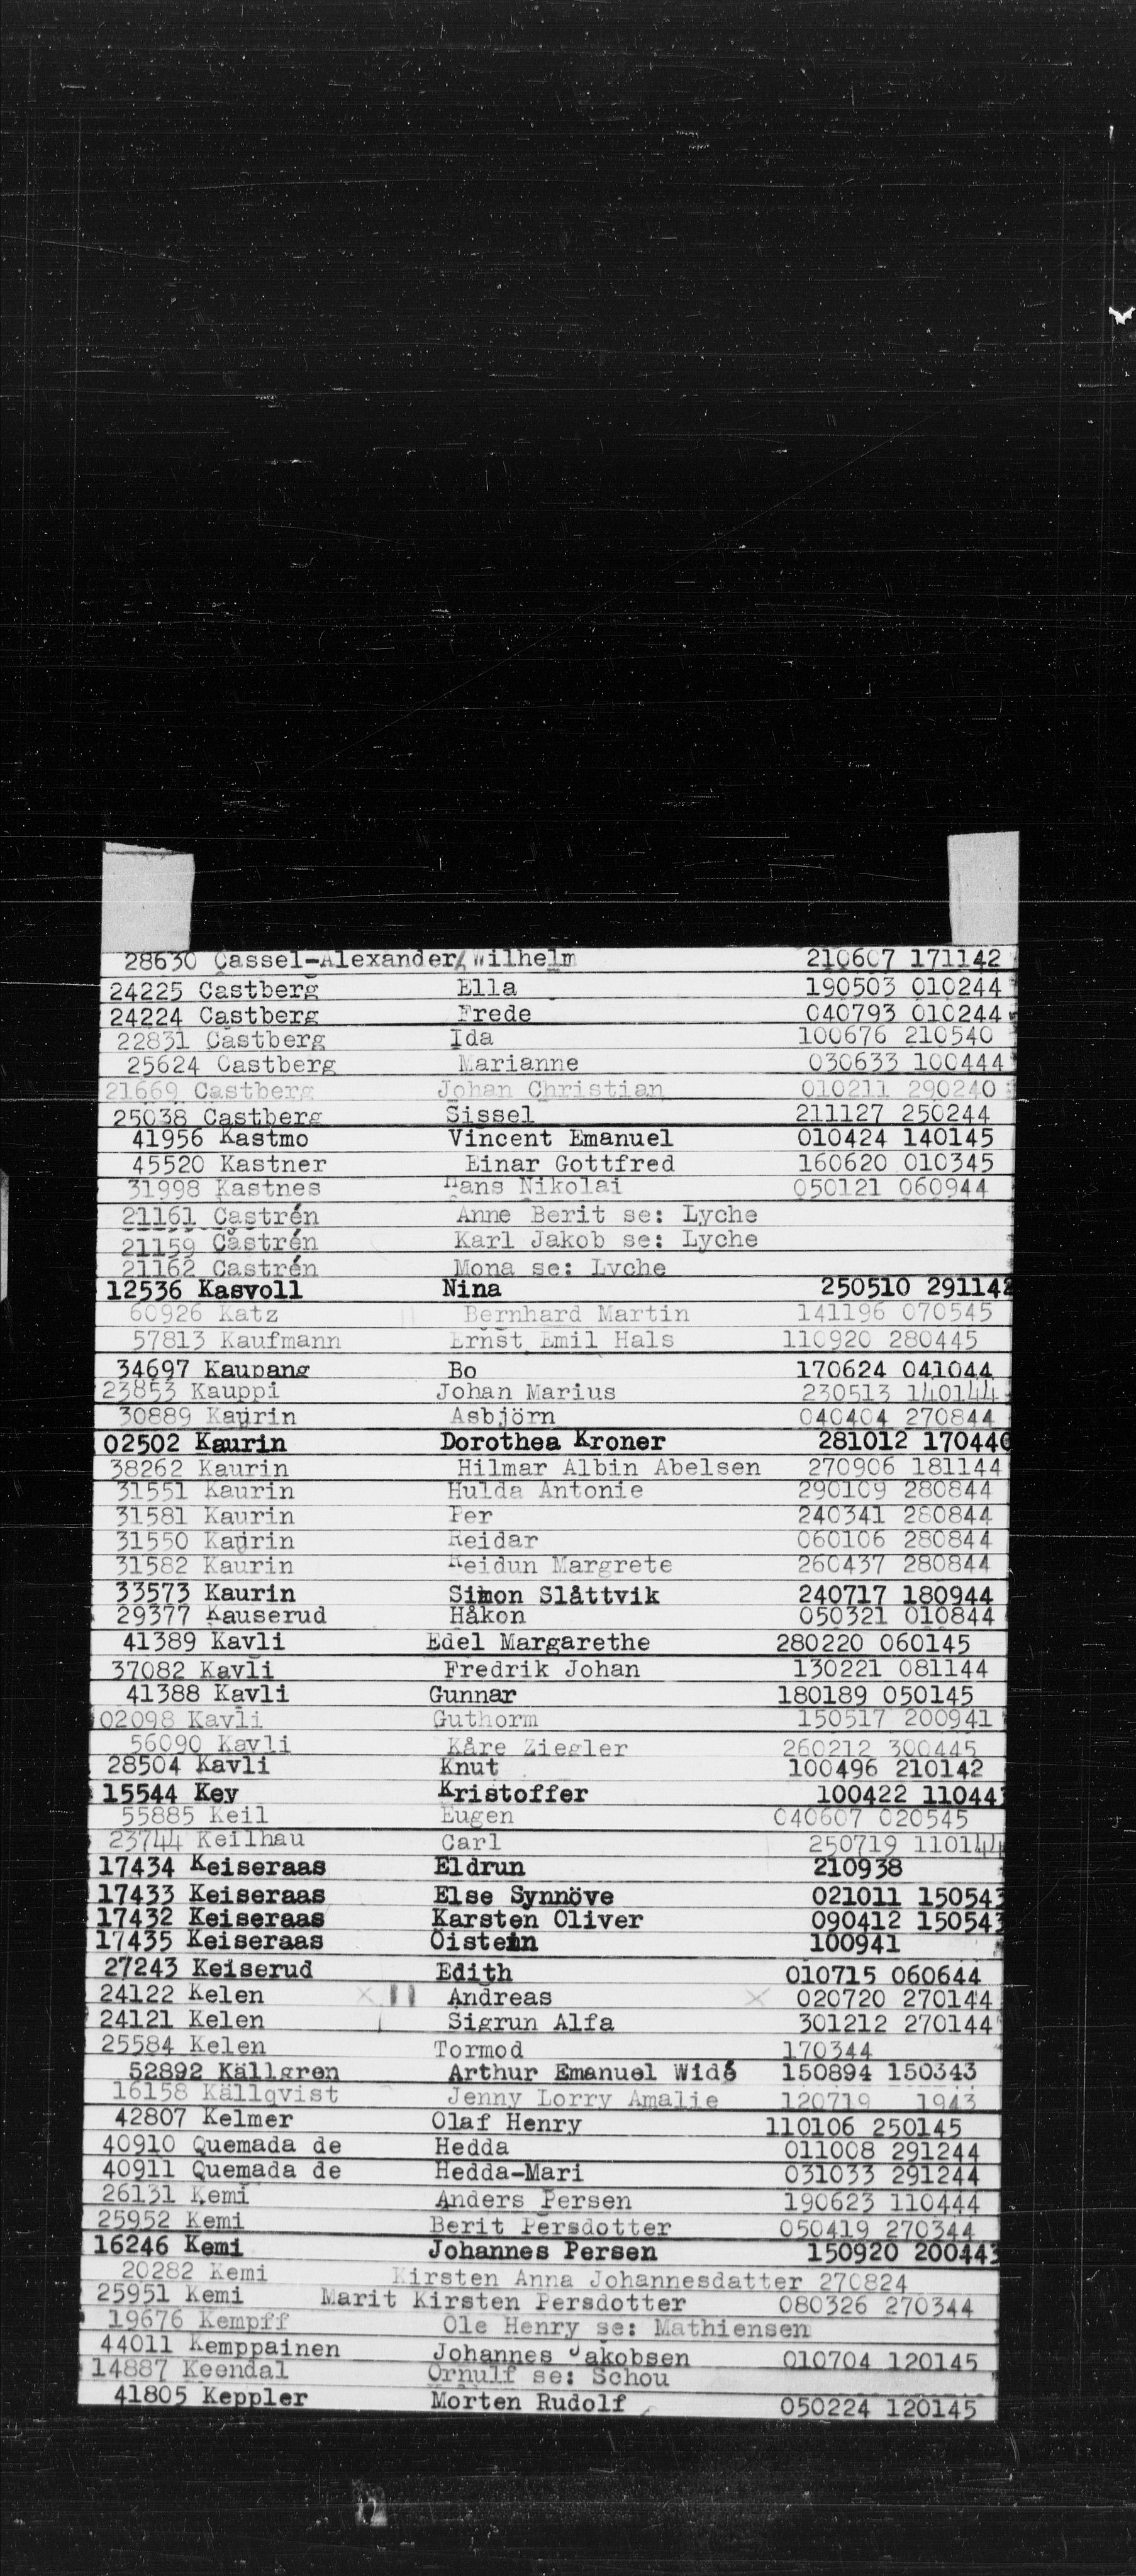 28630 Cassel-Alexander, Wilhelm 210607 171142
24225 Castberg Ella 190503 010244
24224 Castberg Frede 040793 010244
22831 Castberg Ida 100676 210540
25624 Castberg Marianne 030633 100444
21669 Castberg Johan Christian 010211 290240
25038 Castberg Sissel 211127 250244
41956 Kastmo Vincent Emanuel 010424 140145
45520 Kastner Einar Gottfred 160620 010345
31998 Kastnes Hans Nikolai 050121 060944
21161 Castrén Anne Berit se: Lyche
21159 Castrén Karl Jakob se: Lyche
21162 Castrén Mona se: Lyche
12536 Kasvoll Nina 250510 291142
60926 Katz Bernhard Martin 141196 070545
57813 Kaufmann Ernst Emil Hals 110920 280445
34697 Kaupang Bo 170624 041044
23853 Kauppi Johan Marius 230513 140144
30889 Kaurin Asbjörn 040404 270844
02502 Kaurin Dorothea Kroner 281012 170440
38262 Kaurin Hilmar Albin Abelsen 270906 181144
31551 Kaurin Hulda Antonie 290109 280844
31581 Kaurin Per 240341 280844
31550 Kaurin Reidar 060106 280844
31582 Kaurin Reidun Margrete 260437 280844
33573 Kaurin Simon Slåttvik 240717 180944
29377 Kauserud Håkon 050321 010844
41389 Kavli Edel Margarethe 280220 060145
37082 Kavli Fredrik Johan 130221 081144
41388 Kavli Gunnar 180189 050145
02098 Kavli Guthorm 150517 200941
56090 Kavli Kåre Ziegler 260212 300445
28504 Kavli Knut 100496 210142
15544 Key Kristoffer 100422 110443
55885 Keil Eugen 040607 020545
23744 Keilhau Carl 250719 110144
17434 Keiseraas Eldrun 210938
17433 Keiseraas Else Synnöve 021011 150543
17432 Keiseraas Karsten Oliver 090412 150543
17435 Keiseraas Öistein 100941
27243 Keiserud Edith 010715 060644
24122 Kelen Andreas 020720 270144
24121 Kelen Sigrun Alfa 301212 270144
25584 Kelen Tormod 170344
52892 Källgren Arthur Emanuel Widé 150894 150343
16158 Källqvist Jenny Lorry Amalie 120719 1943
42807 Kelmer Olaf Henry 110106 250145
40910 Quemada de Hedda 011008 291244
40911 Quemada de Hedda-Mari 031033 291244
26131 Kemi Anders Persen 190623 110444
25952 Kemi Berit Persdotter 050419 270344
16246 Kemi Johannes Persen 150920 200443
20282 Kemi Kirsten Anna Johannesdatter 270824
25951 Kemi Marit Kirsten Persdotter 080326 270344
19676 Kempff Ole Henry se: Mathiensen
44011 Kemppainen Johannes Jakobsen 010704 120145
14887 Keendal Ørnulf se: Schou
41805 Keppler Morten Rudolf 050224 120145